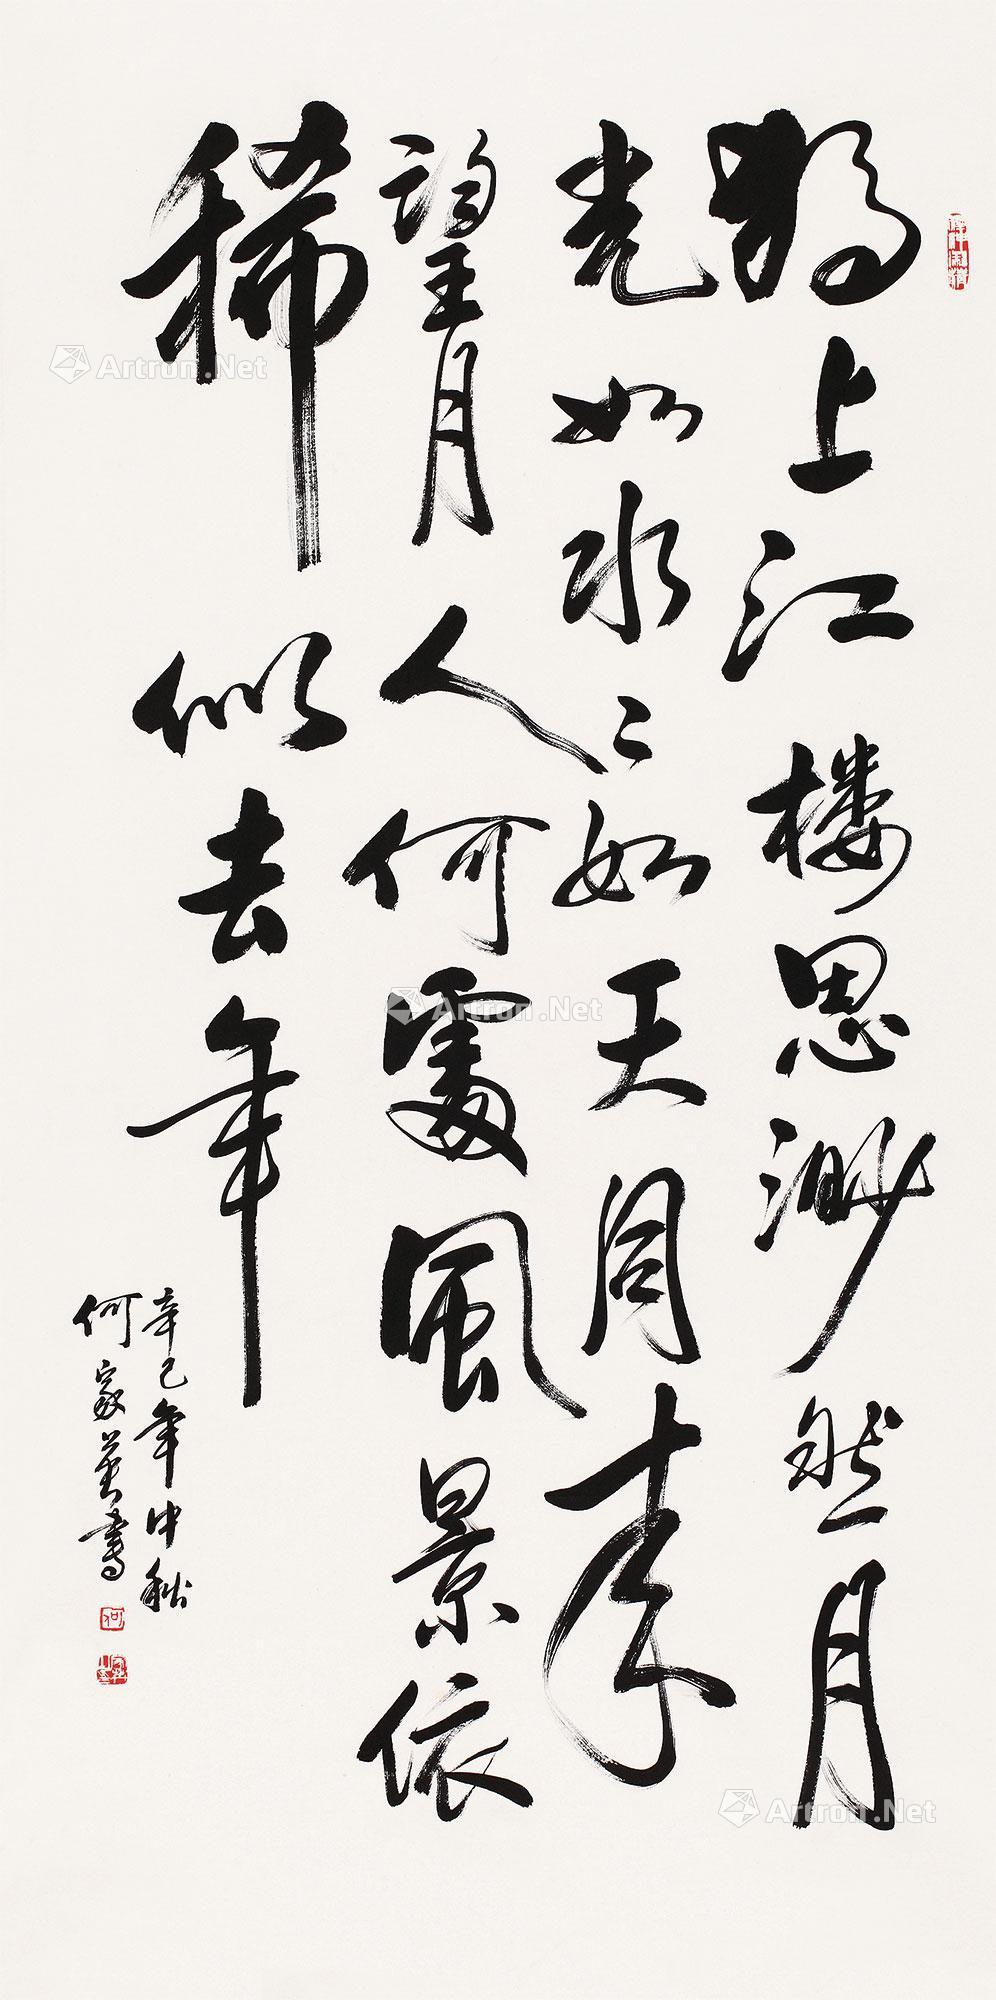 独上江楼思渺然月
光如水二如天同来
望月人何處風景依
稀似去年
辛巳年中秋
何家英書
Artron.Net
Artron.Net
Artron.Net